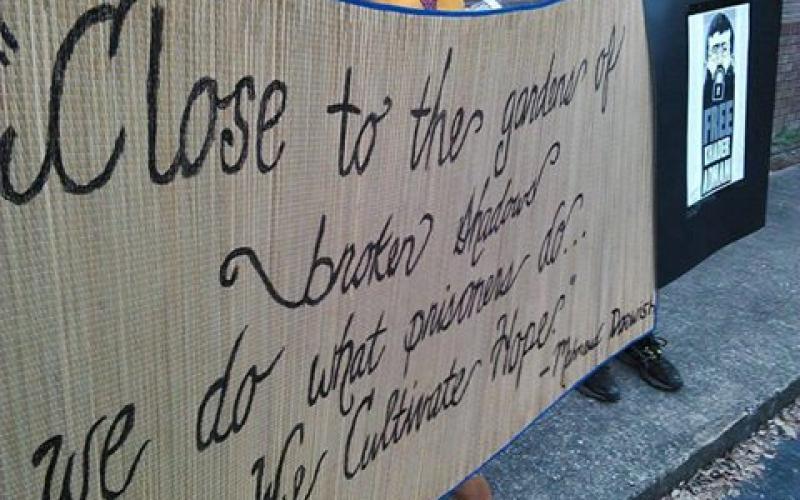 "Close to the gardens of
broken shadows
we do what prisoners do...
We Cultivate Hope."
-Mahmoud Darwish
FREE
KHADER
ADNAN